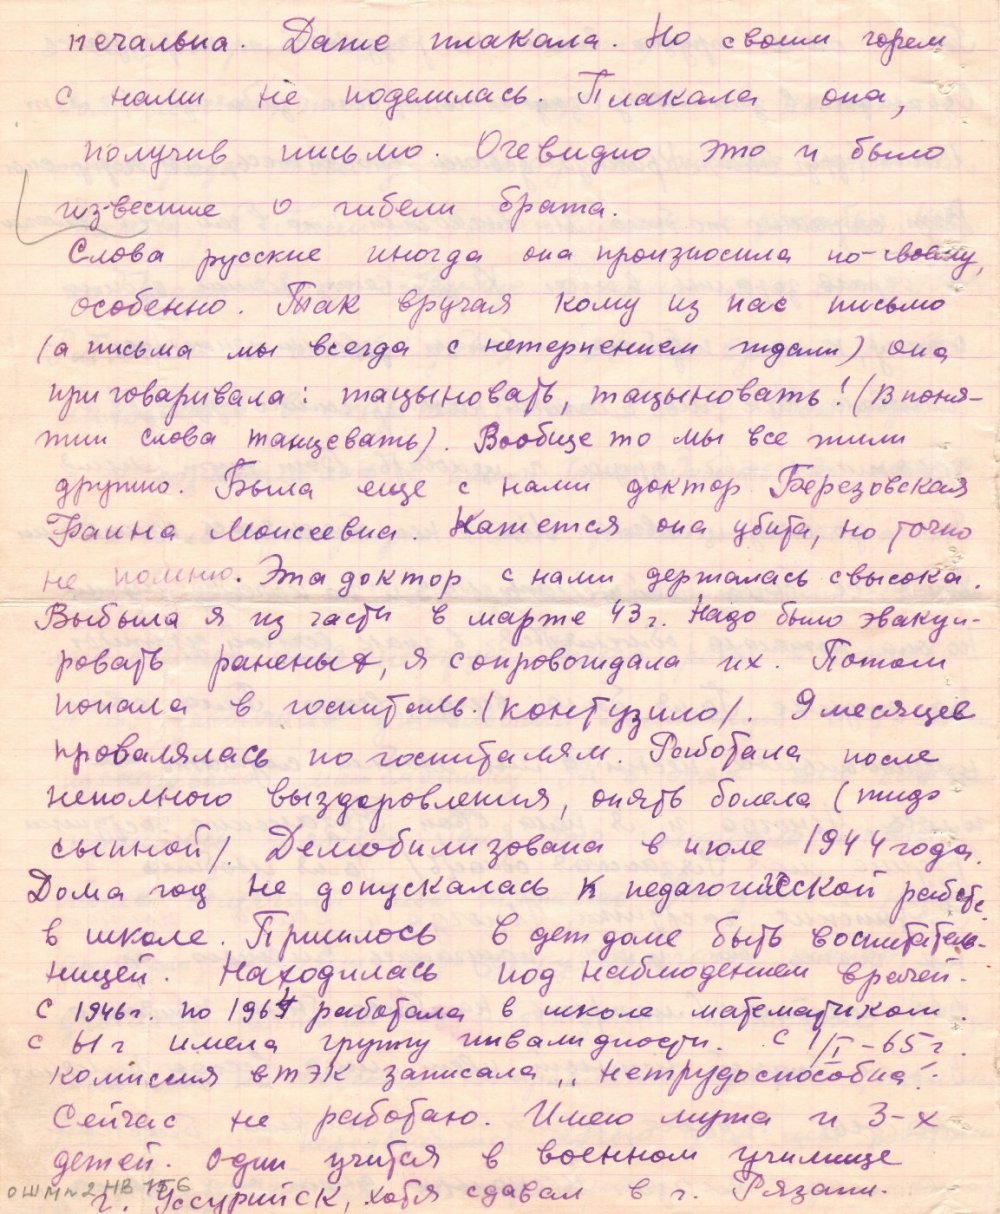 печальна. Даже плакала. Но своим горем
с нами не поделилась. Плакала она,
получив письмо. Очевидно это и было
известие о гибели брата.
Слова русские иногда она произносила по-своему,
особенно. Так вручая кому из нас письмо
(а письма мы всегда с нетерпением ждали) она
приговаривала: тацыновать, тацыновать! (В поня-
тии слова танцевать). Вообще то мы все жили
дружно. Была еще с нами доктор Березовская
Фаина Моисеевна. Кажется она убита, но точно
не помню. Эта доктор с нами держалась свысока.
Выбыла я из части в марте 43 г. Надо было эвакуи-
ровать раненых, я сопровождала их. Потом
попала в госпиталь. (контузило). 9 месяцев
провалялась по госпиталям. Работала после
неполного выздоровления, опять болела (тиф
сыпной). Демобилизована в июле 1944 года.
Дома год не допускалась к педагогической работе
в школе. Пришлось в дет доме быть воспитатель-
ницей. Находилась под наблюдением врачей.
С 1946 г. по 1964 работала в школе математиком.
С 61 г имела группу инвалидности. С 1/I-65 г.
комиссия ВТЭК записала „нетрудоспособна".
Сейчас не работаю. Имею мужа и 3-х
детей. Один учится в военном училище
г. Уссурийск, хотя сдавал в г. Рязани.
ОШМ н2 НВ 156